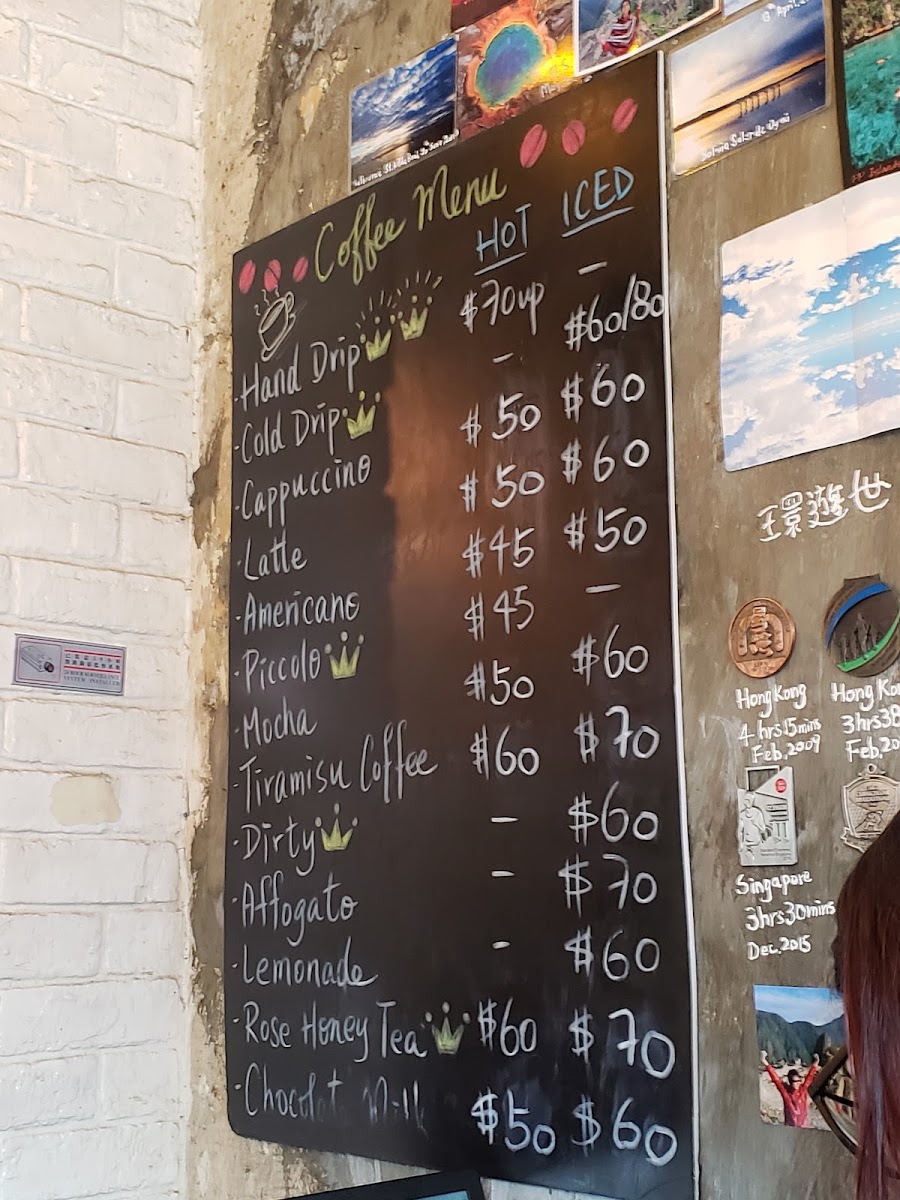 Coffee Menu
HOT ICED
·Hand Drip $70up –
·Cold Drip – $60/80
·Cappuccino $50 $60
·Latte $50 $60
·Americano $45 $50
·Piccolo $45 –
·Mocha $50 $60
·Tiramisu Coffee $60 $70
·Dirty – $60
·Affogato – $70
·Lemonade – $60
·Rose Honey Tea $60 $70
·Chocolat $50 $60
環遊世
HongKong
4hrs15mins
Feb.2009
Hong Ko
3hrs38
Feb.20
Singapore
3hrs30mins
Dec.2015
24 HOUR SURVEILLANCE
SYSTEM INSTALLED